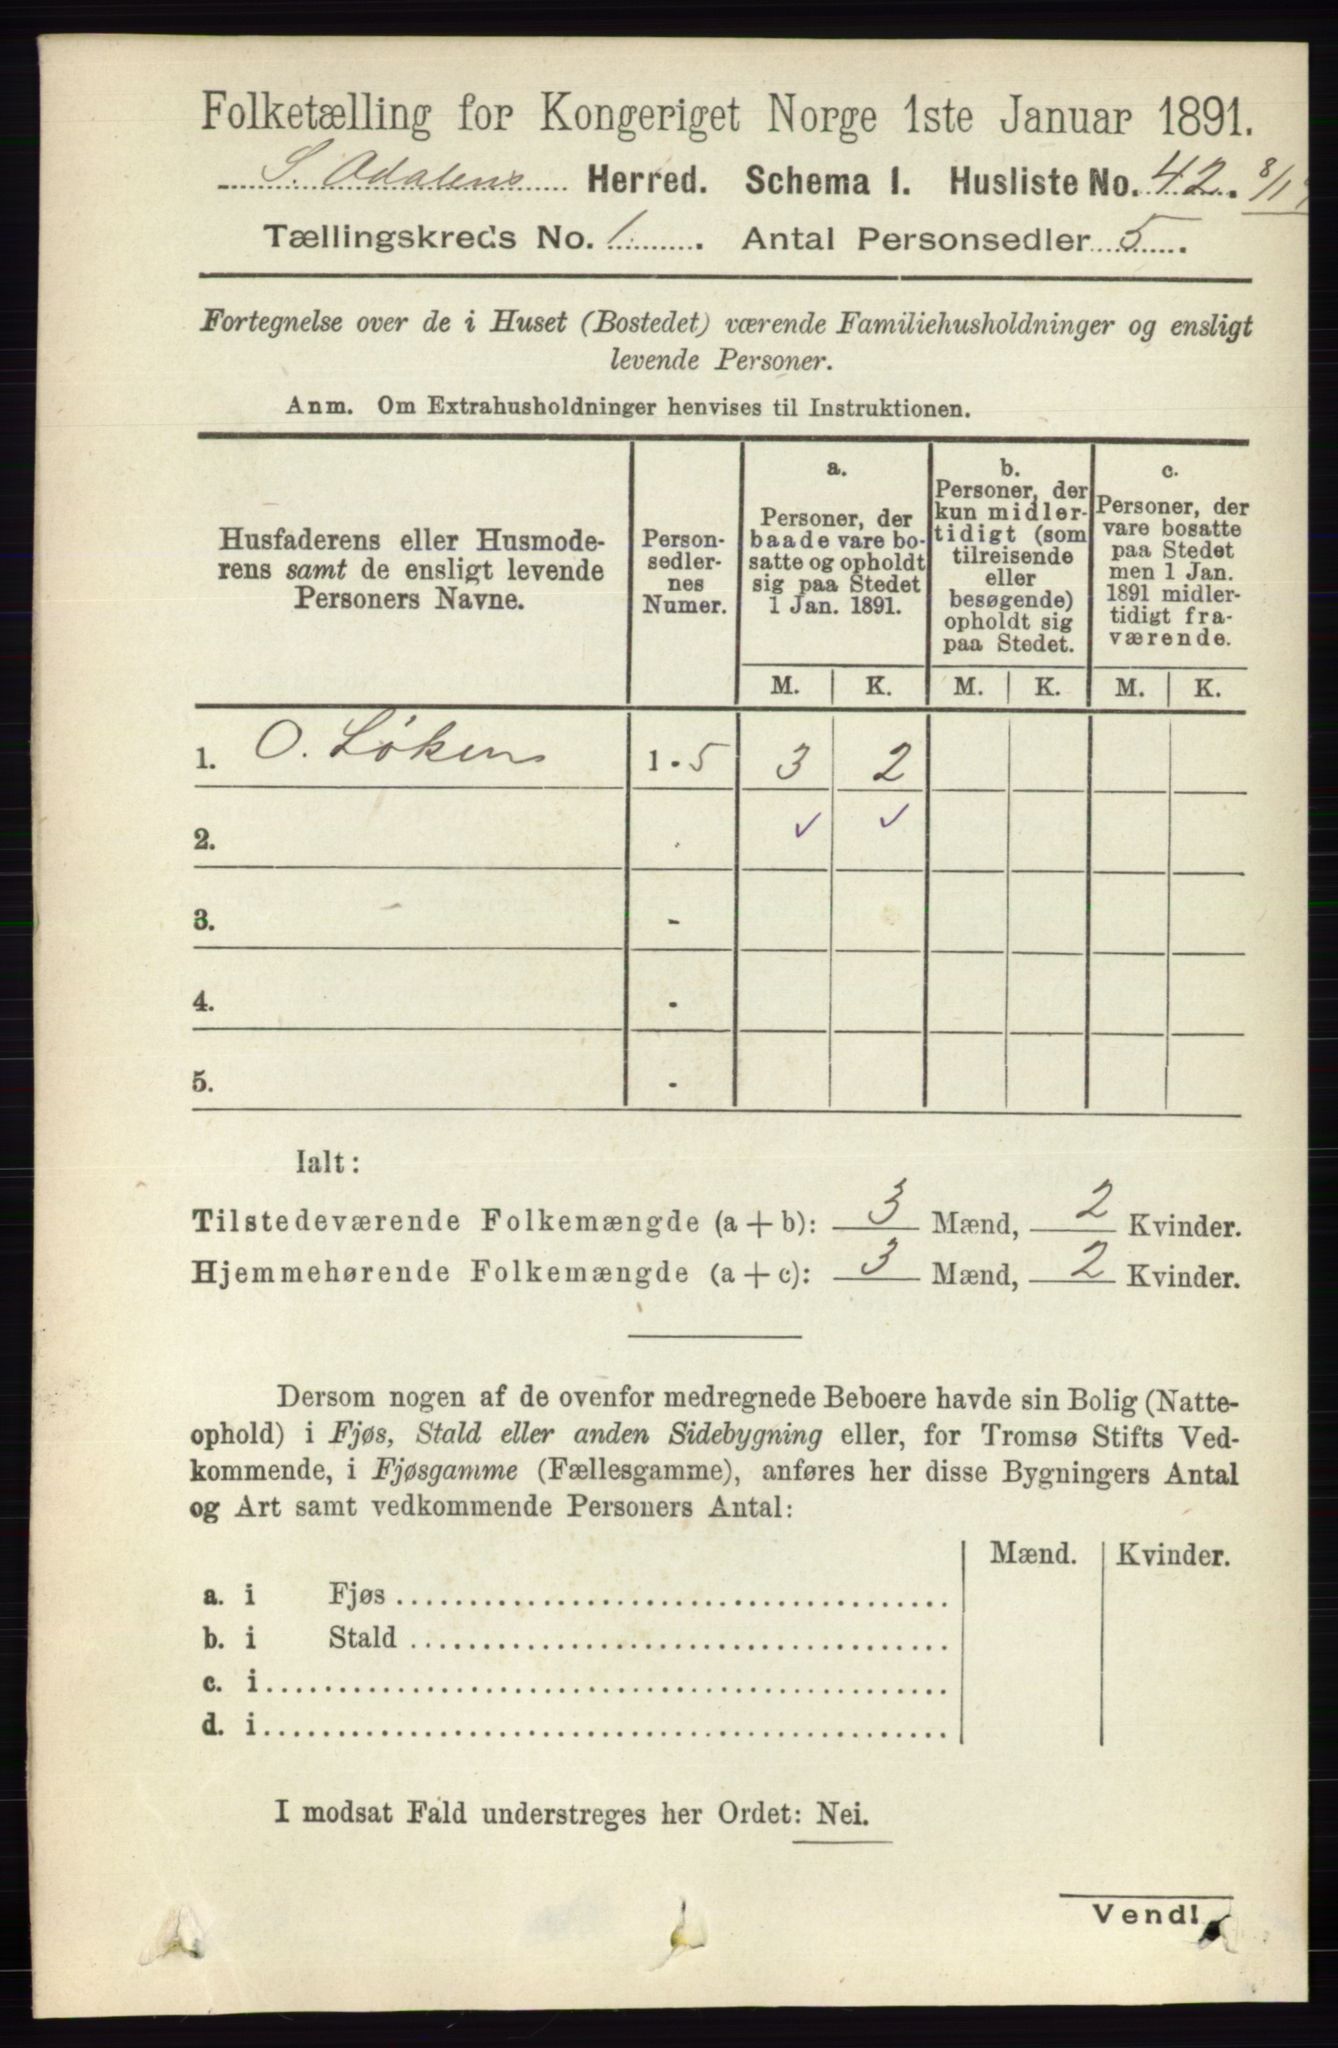 Folketælling for Kongeriget Norge 1ste Januar 1891.
S. Odalens Herred. Schema I. Husliste No. 42. 8/1
Tællingskreds No. 1. Antal Personsedler 5.
Fortegnelse over de i Huset (Bostedet) værende Familiehusholdninger og ensligt
levende Personer.
Anm. Om Extrahusholdninger henvises til Instruktionen.
Husfaderens eller Husmode-
rens samt de ensligt levende
Personers Navne.
Person-
sedler-
nes
Numer.
a.
Personer, der
baade vare bo-
satte og opholdt
sig paa Stedet
1 Jan. 1891.
b.
Personer, der
kun midler-
tidigt (som
tilreisende
eller
besøgende)
opholdt sig
paa Stedet.
c.
Personer, der
vare bosatte
paa Stedet
men 1 Jan.
1891 midler-
tidigt fra-
værende.
M. K. M. K. M. K.
1. O. Løken 1-5 3 2
2. - ✓ ✓
3. -
4. -
5. -
Ialt:
Tilstedeværende Folkemængde (a+b): 3 Mænd, 2 Kvinder.
Hjemmehørende Folkemængde (a+c): 3 Mænd, 2 Kvinder.
Dersom nogen af de ovenfor medregnede Beboere havde sin Bolig (Natte-
ophold) i Fjøs, Stald eller anden Sidebygning eller, for Tromsø Stifts Ved-
kommende, i Fjøsgamme (Fællesgamme), anføres her disse Bygningers Antal
og Art samt vedkommende Personers Antal:
Mænd. Kvinder.
a. i Fjøs
b. i Stald
c. i
d. i
I modsat Fald understreges her Ordet: Nei.
Vend!